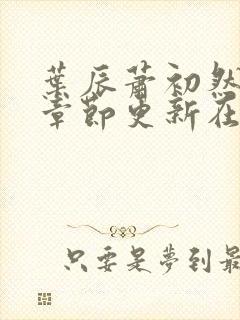 葉辰蕭初然
章節更新在
只要是夢到最